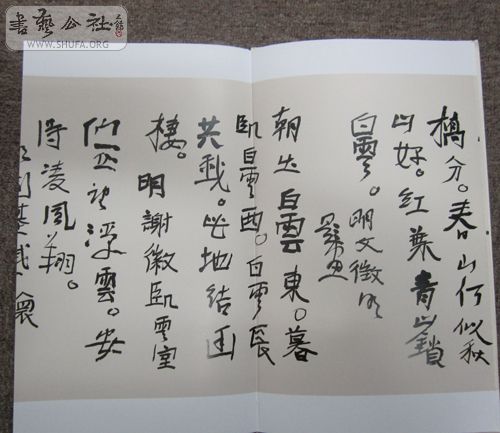 書藝公社
WWW.SHUFA.ORG
橋分。春山何似秋
山好。红葉青山鎖
白雲。明文徵明
朝出白雲東。暮
卧白雲西。白雲長
共我。此地结幽
棲。明謝徽卧雲室
仰望浮雲。安
得凌風翔。
明劉基感懷